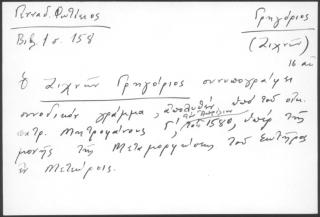 Γενναδ. Φωτίειος
Βιβλ. 1 σ. 158
Γρηγόριος
(Ζιχνῶν)
16 αἰ
Ὁ Ζιχνῶν Γρηγόριος συνυπογράφει
συνοδικὸν γράμμα, ἀπολυθὲν ὑπὸ τοῦ οἰκ.
πατρ. Μητροφάνους Γ΄, τοῦ 1580, ὑπὲρ τῆς
μονῆς τῆς Μεταμορφώσεως τοῦ Σωτῆρος
ἐν Μετεώροις.